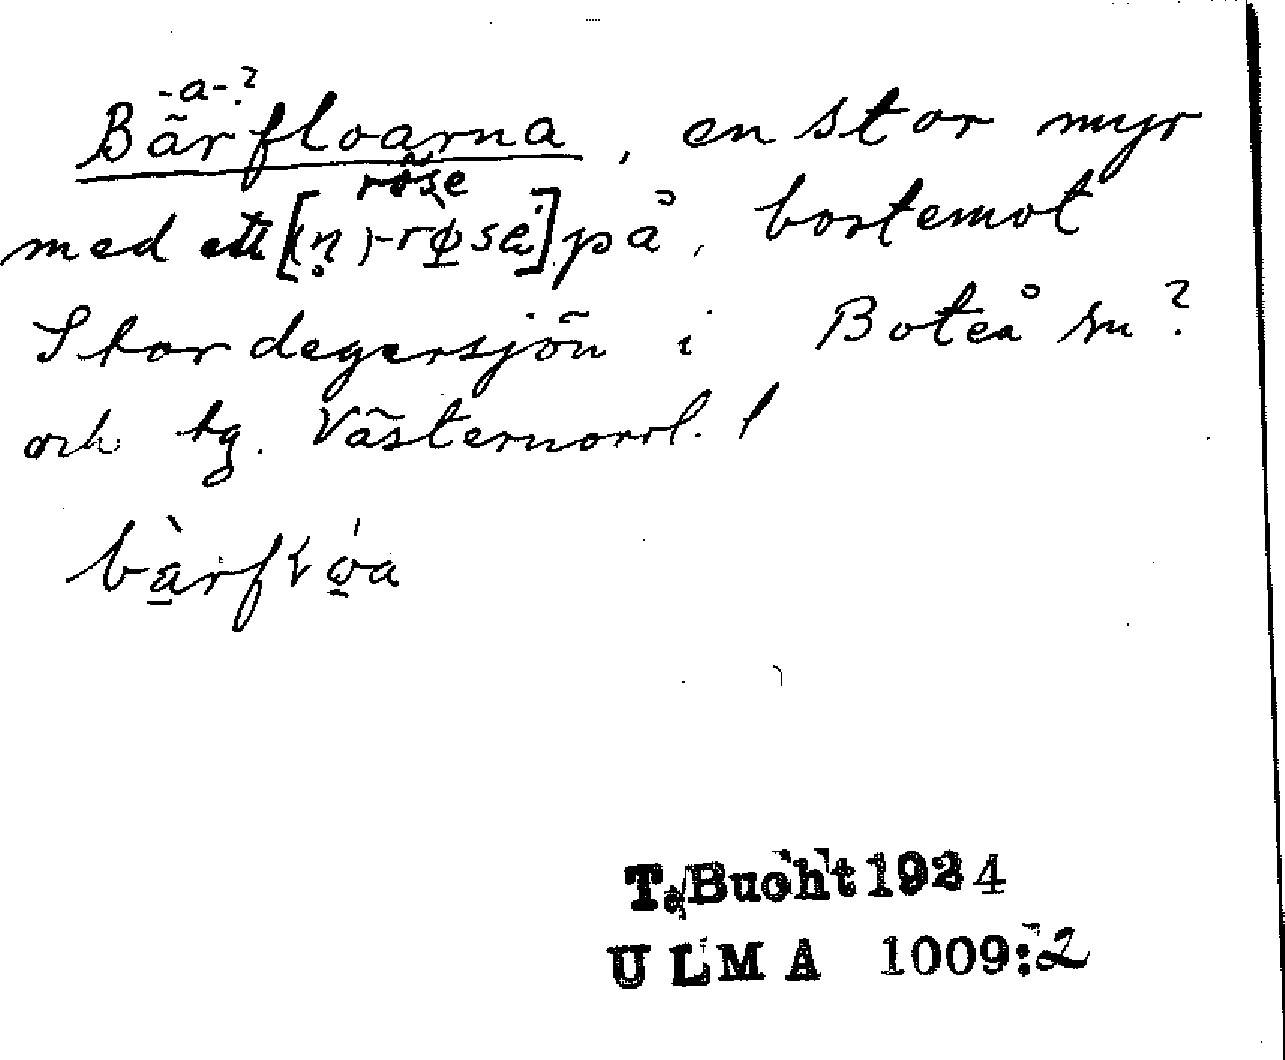 -a-?
Bärfloarna, en stor myr
röse
med ett [(n̥)-røse] på, bortemot
Stordegersjön i Boteå sn?
och tg. Västernorrl. l
bàrfɽǿa
T. Bucht 1924
ULMA 1009:2